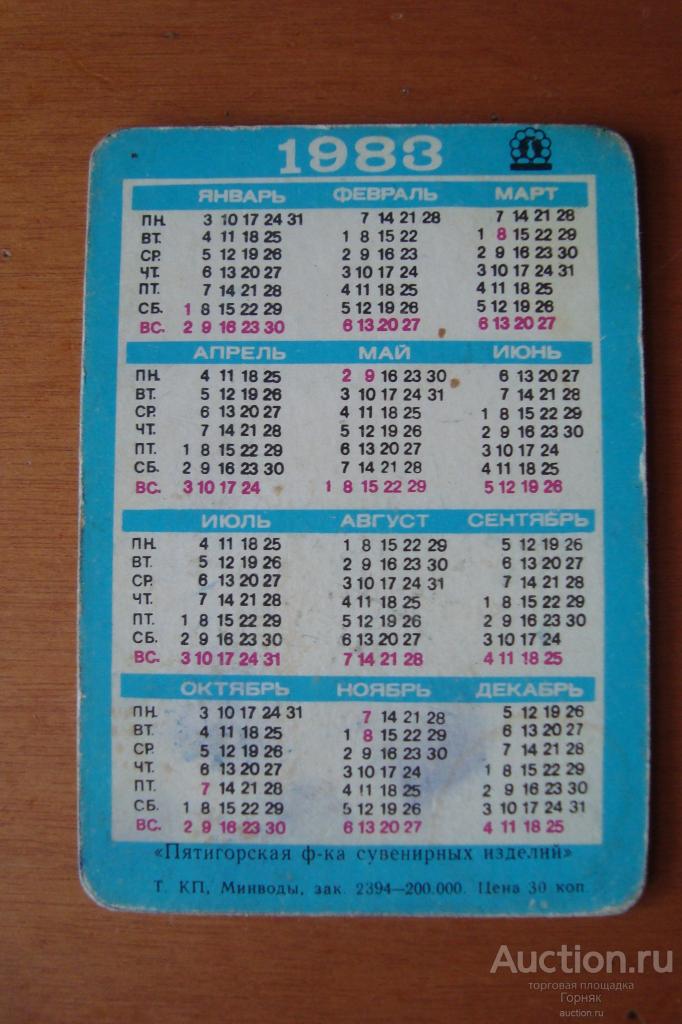 1983
ЯНВАРЬ ФЕВРАЛЬ МАРТ
ПН. 3 10 17 24 31 7 14 21 28 7 14 21 28
ВТ. 4 11 18 25 1 8 15 22 1 8 15 22 29
СР. 5 12 19 26 2 9 16 23 2 9 16 23 30
ЧТ. 6 13 20 27 3 10 17 24 3 10 17 24 31
ПТ. 7 14 21 28 4 11 18 25 4 11 18 25
СБ. 1 8 15 22 29 5 12 19 26 5 12 19 26
ВС. 2 9 16 23 30 6 13 20 27 6 13 20 27
АПРЕЛЬ МАЙ ИЮНЬ
ПН. 4 11 18 25 2 9 16 23 30 6 13 20 27
ВТ. 5 12 19 26 3 10 17 24 31 7 14 21 28
СР. 6 13 20 27 4 11 18 25 1 8 15 22 29
ЧТ. 7 14 21 28 5 12 19 26 2 9 16 23 30
ПТ. 1 8 15 22 29 6 13 20 27 3 10 17 24
СБ. 2 9 16 23 30 7 14 21 28 4 11 18 25
ВС. 3 10 17 24 1 8 15 22 29 5 12 19 26
ИЮЛЬ АВГУСТ СЕНТЯБРЬ
ПН. 4 11 18 25 1 8 15 22 29 5 12 19 26
ВТ. 5 12 19 26 2 9 16 23 30 6 13 20 27
СР. 6 13 20 27 3 10 17 24 31 7 14 21 28
ЧТ. 7 14 21 28 4 11 18 25 1 8 15 22 29
ПТ. 1 8 15 22 29 5 12 19 26 2 9 16 23 30
СБ. 2 9 16 23 30 6 13 20 27 3 10 17 24
ВС. 3 10 17 24 31 7 14 21 28 4 11 18 25
ОКТЯБРЬ НОЯБРЬ ДЕКАБРЬ
ПН. 3 10 17 24 31 7 14 21 28 5 12 19 26
ВТ. 4 11 18 25 1 8 15 22 29 6 13 20 27
СР. 5 12 19 26 2 9 16 23 30 7 14 21 28
ЧТ. 6 13 20 27 3 10 17 24 1 8 15 22 29
ПТ. 7 14 21 28 4 11 18 25 2 9 16 23 30
СБ. 1 8 15 22 29 5 12 19 26 3 10 17 24 31
ВС. 2 9 16 23 30 6 13 20 27 4 11 18 25
«Пятигорская ф-ка сувенирных изделий»
Т. КП, Минводы, зак. 2394—200.000. Цена 30 коп.
Auction.ru
торговая площадка
Горняк
auction.ru